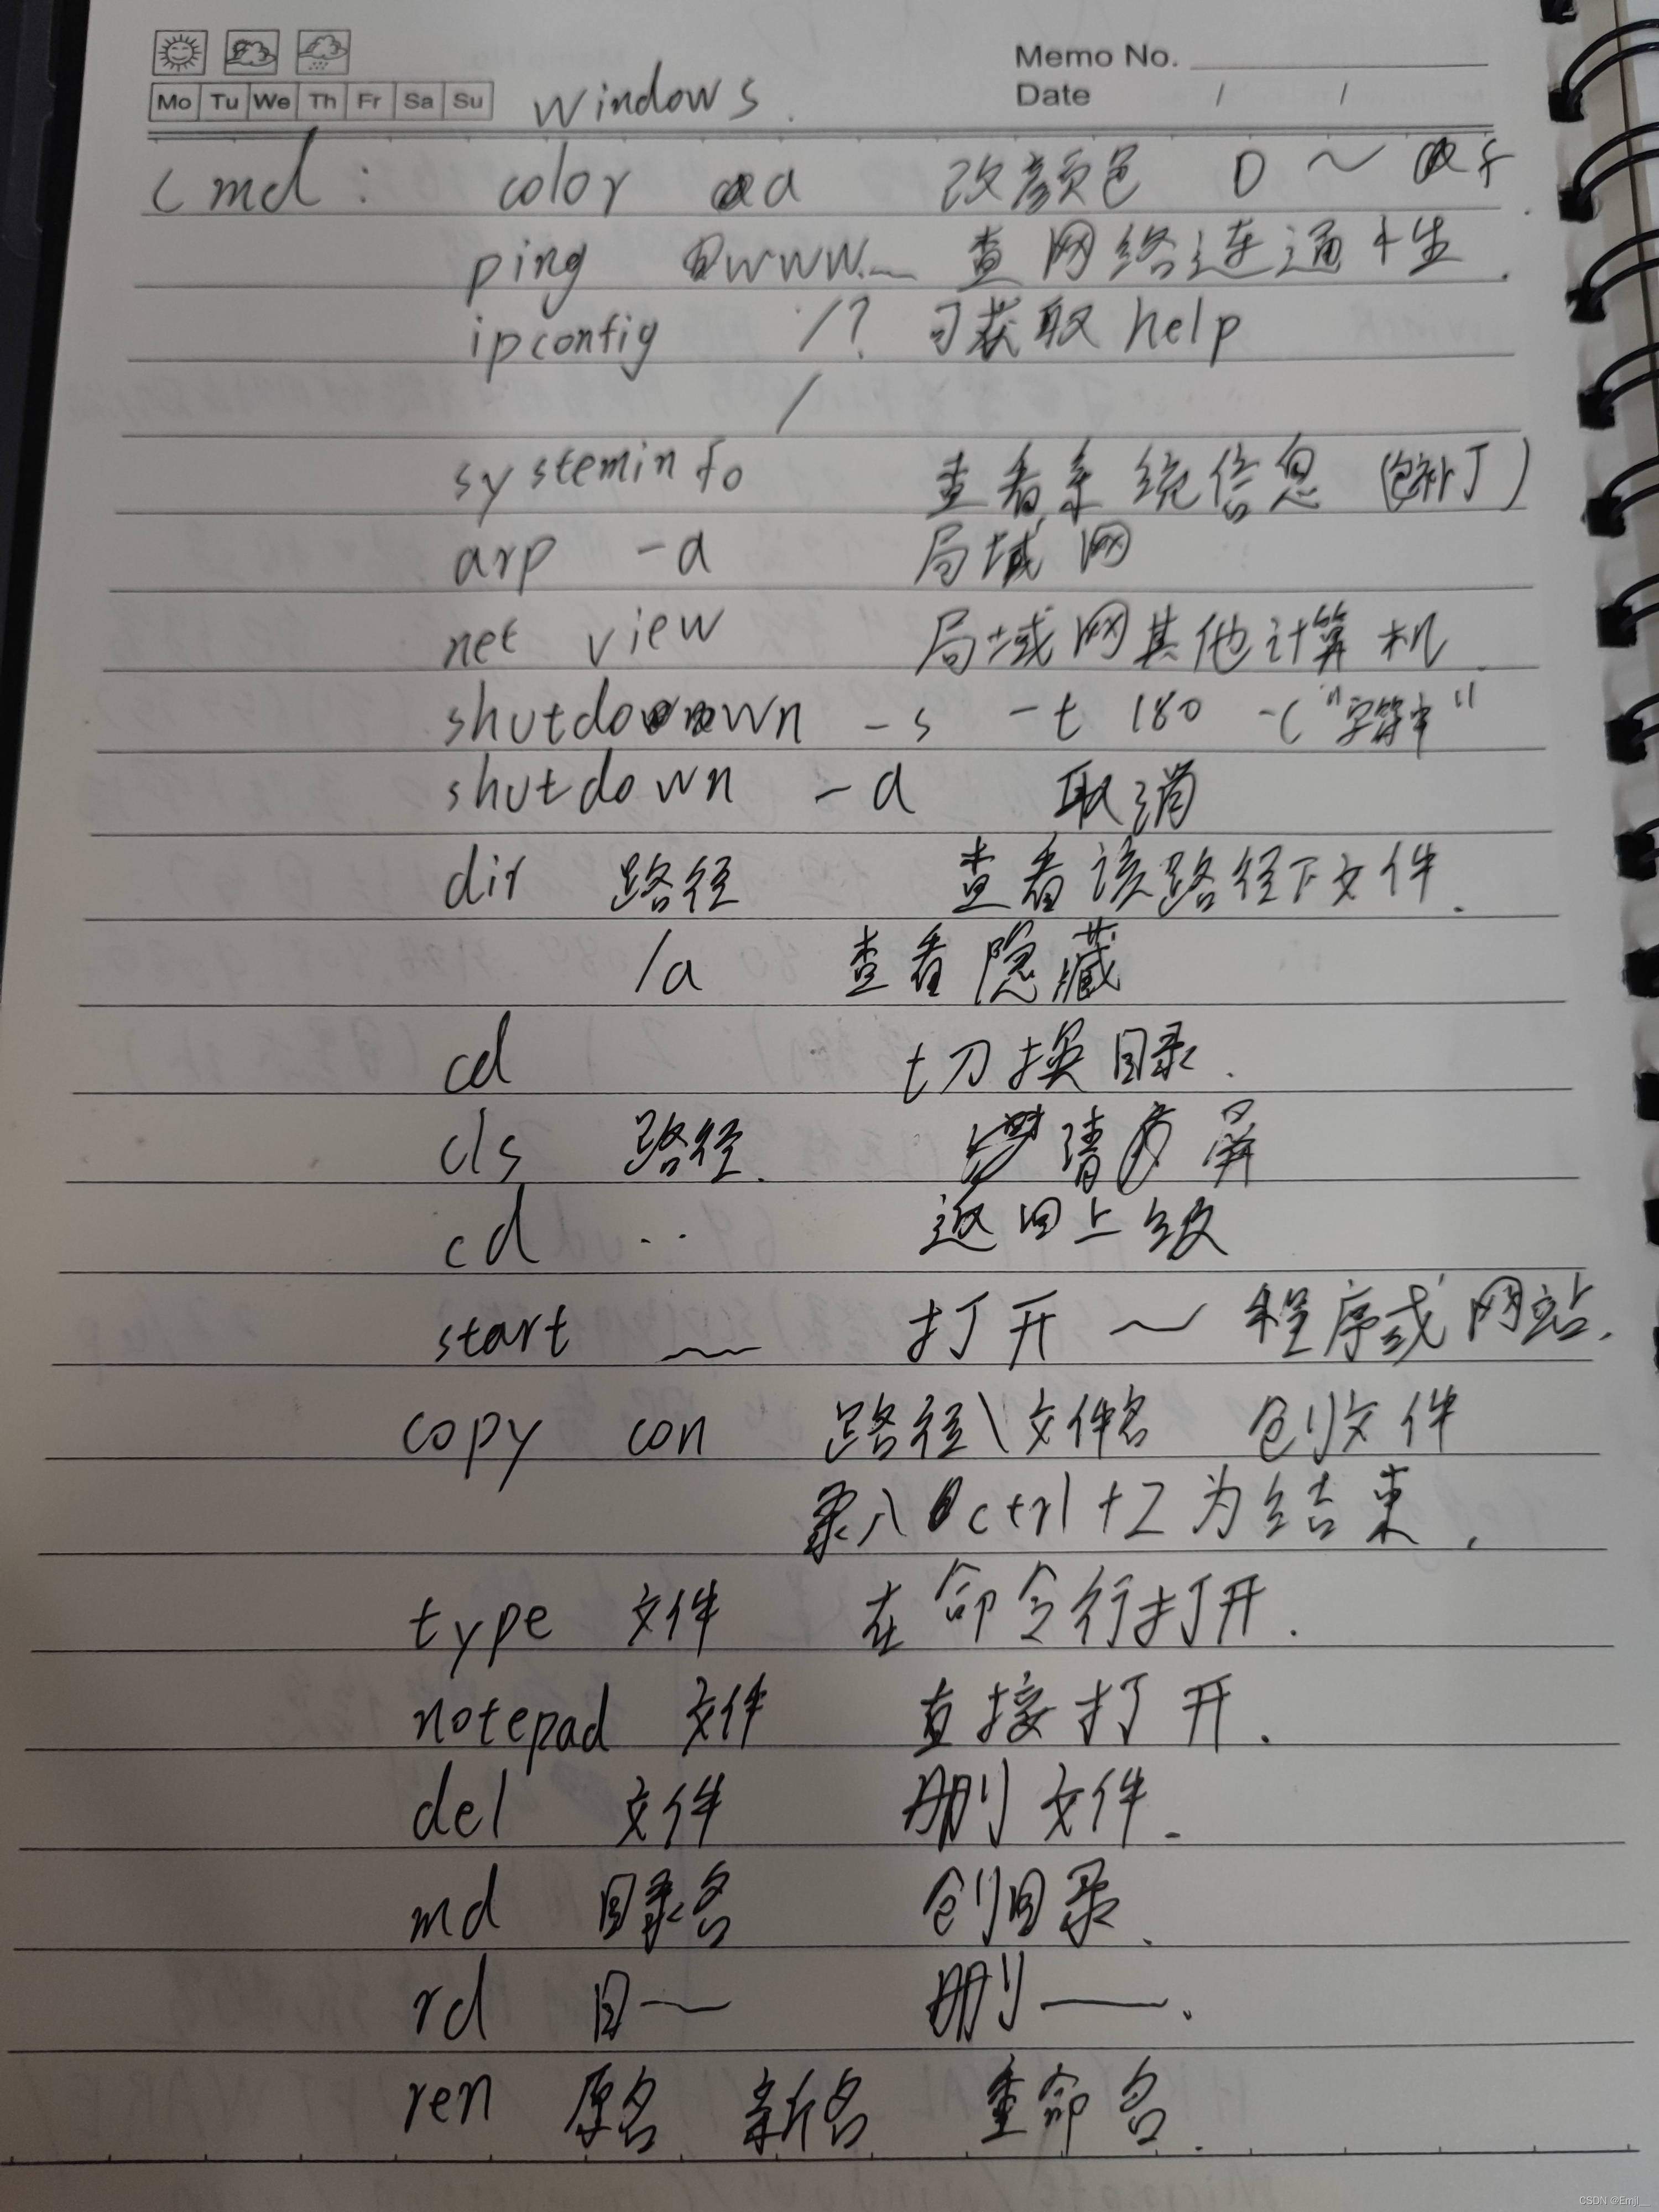 Memo No.
Mo Tu We Th Fr Sa Su windows. Date / /
cmd: color a 改颜色 0 ~ f.
ping www.__ 查网络连通性.
ipconfig /? 可获取help
/
systeminfo 查看系统信息 (包补丁)
arp -a 局域网
net view 局域网其他计算机.
shutdown -s -t 180 -c "字符串"
shutdown -a 取消
dir 路径 查看该路径下文件.
/a 查看隐藏
cd 切换目录.
cls 路径. 清屏
cd .. 返回上级
start __ 打开 ~ 程序或网站.
copy con 路径\文件名 创文件
录入 ctrl+Z为结束.
type 文件 在命令行打开.
notepad 文件 直接打开.
del 文件 删文件.
md 目录名 创目录.
rd 目— 删——.
ren 原名 新名 重命名.
CSDN @Emjl__